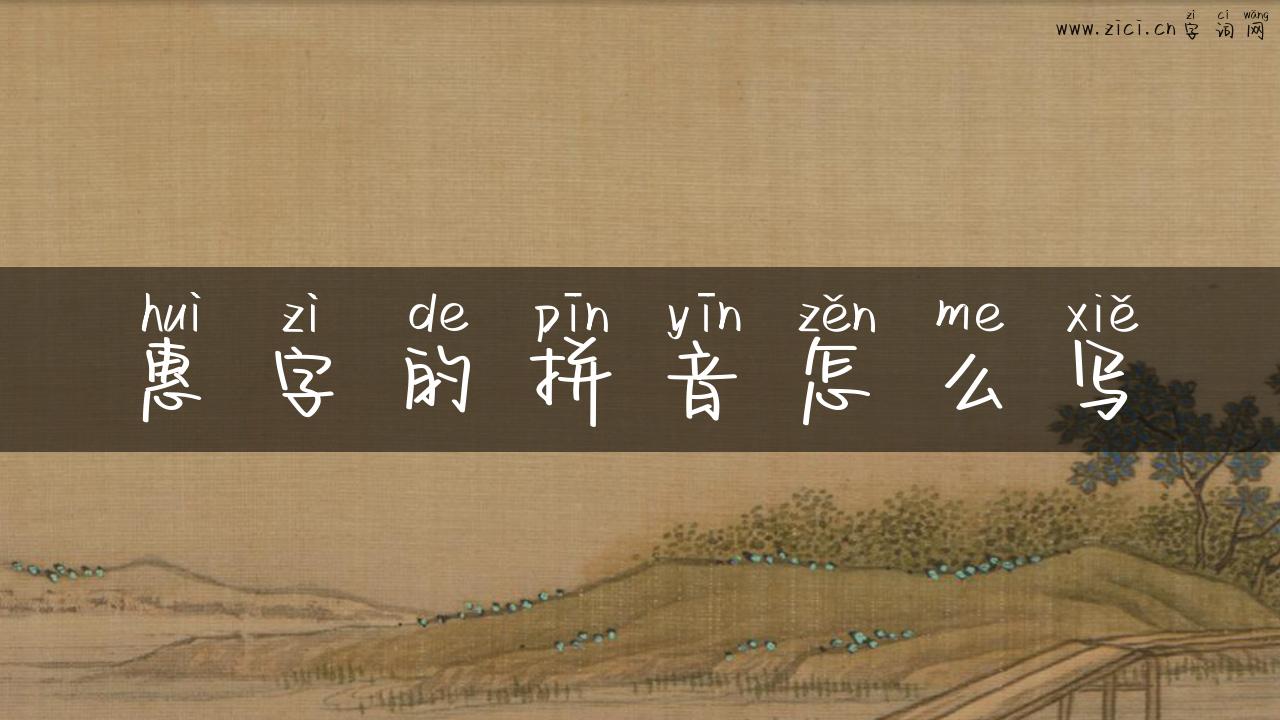 zì cí wǎng
www.zici.cn字词网
huì zì de pīn yīn zěn me xiě
惠字的拼音怎么写